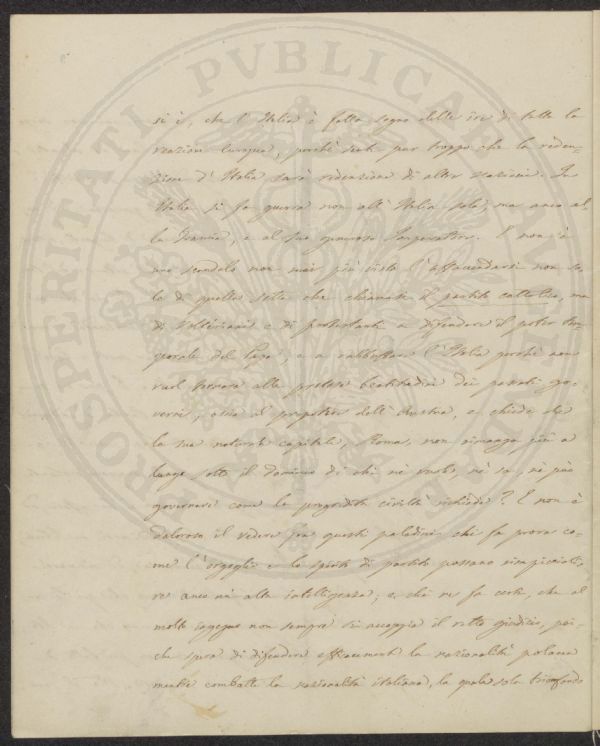 si è, che l'Italia è fatta segno delle ire di tutta la
reazione Europea, perchè sente pur troppo che la reden-
zione d'Italia sarà redenzione di altre nazioni. In
Italia si fa guerra non all'Italia sola, ma anco al-
la Francia, e al suo generoso Imperatore. E non è
uno scandalo non mai più visto l'affaccendarsi non so-
lo di quella setta che chiamasi il partito cattolico, ma
di Volteriani e di protestanti a difendere il poter tem-
porale del Papa, e a rabbuffare l'Italia perchè non
vuol tornare alle pretese beatitudini dei passati go-
verni, ossia al prepotere dell'Austria, e chiede che
la sua naturale capitale, Roma, non rimanga più a
lungo sotto il dominio di chi nè vuole, nè sa, nè può
governare come la progredita civiltà richiede? E non è
doloroso il vedere fra questi paladini chi fa prova co-
me l'orgoglio e lo spirito di partito possano rimpicciolì-
re anco un'alta intelligenza; e chi ne fa certi, che al
molto ingegno non sempre si accoppia il retto giudizio, poi-
chè spera di difendere efficacemente la nazionalità polacca
mentre combatte la nazionalità italiana, la quale sola trionfando
PROSPERITATI PVBLICAE